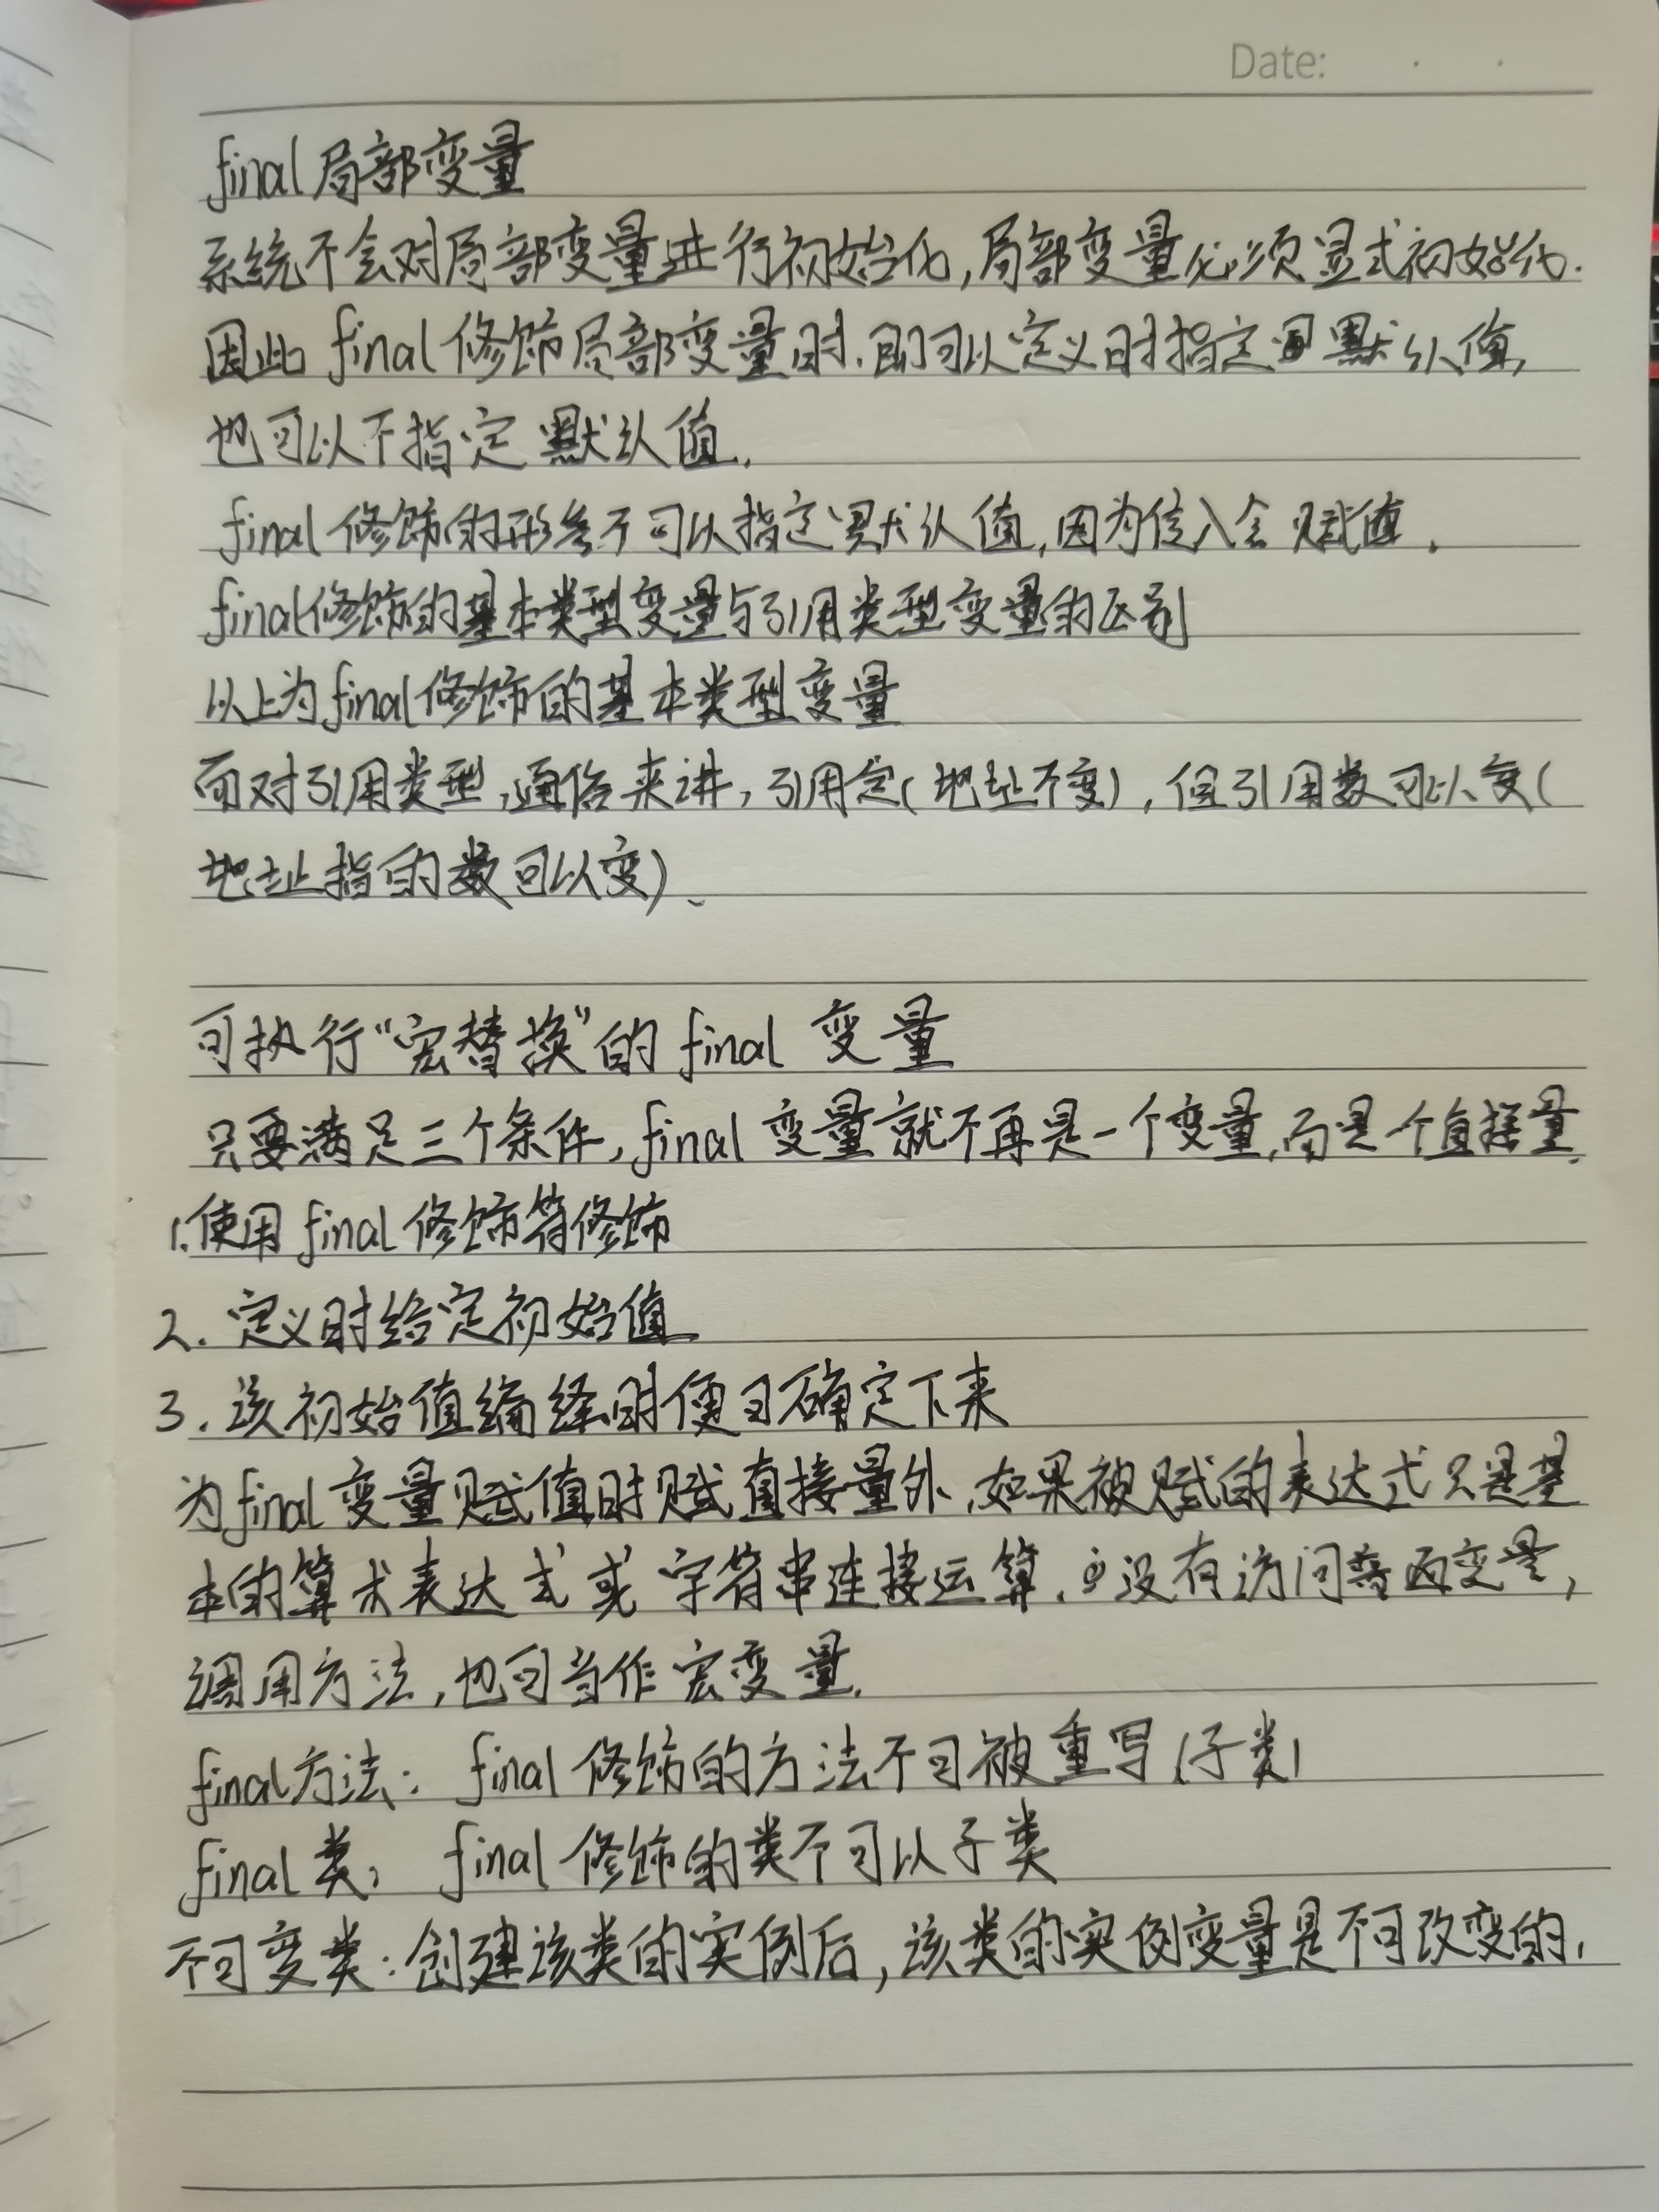 Date: . .
final局部变量
系统不会对局部变量进行初始化,局部变量必须显式初始化.
因此 final修饰局部变量时.即可以定义时指定默认值,
也可以不指定默认值.
final修饰的形参不可以指定默认值,因为传入会赋值.
final修饰的基本类型变量与引用类型变量的区别
以上为final修饰的基本类型变量
而对引用类型,通俗来讲,引用定(地址不变),但引用数可以变(
地址指的数可以变)、
可执行“宏替换”的 final 变量
只要满足三个条件,final 变量就不再是一个变量,而是一个直接量.
1.使用 final 修饰符修饰
2.定义时给定初始值
3.该初始值编绎时便可确定下来
为final变量赋值时赋直接量外,如果被赋的表达式只是基
本的算术表达式或字符串连接运算.没有访问普通变量,
调用方法,也可当作宏变量.
final方法: final修饰的方法不可被重写(子类)
final类: final修饰的类不可以子类
不可变类:创建该类的实例后,该类的实例变量是不可改变的.